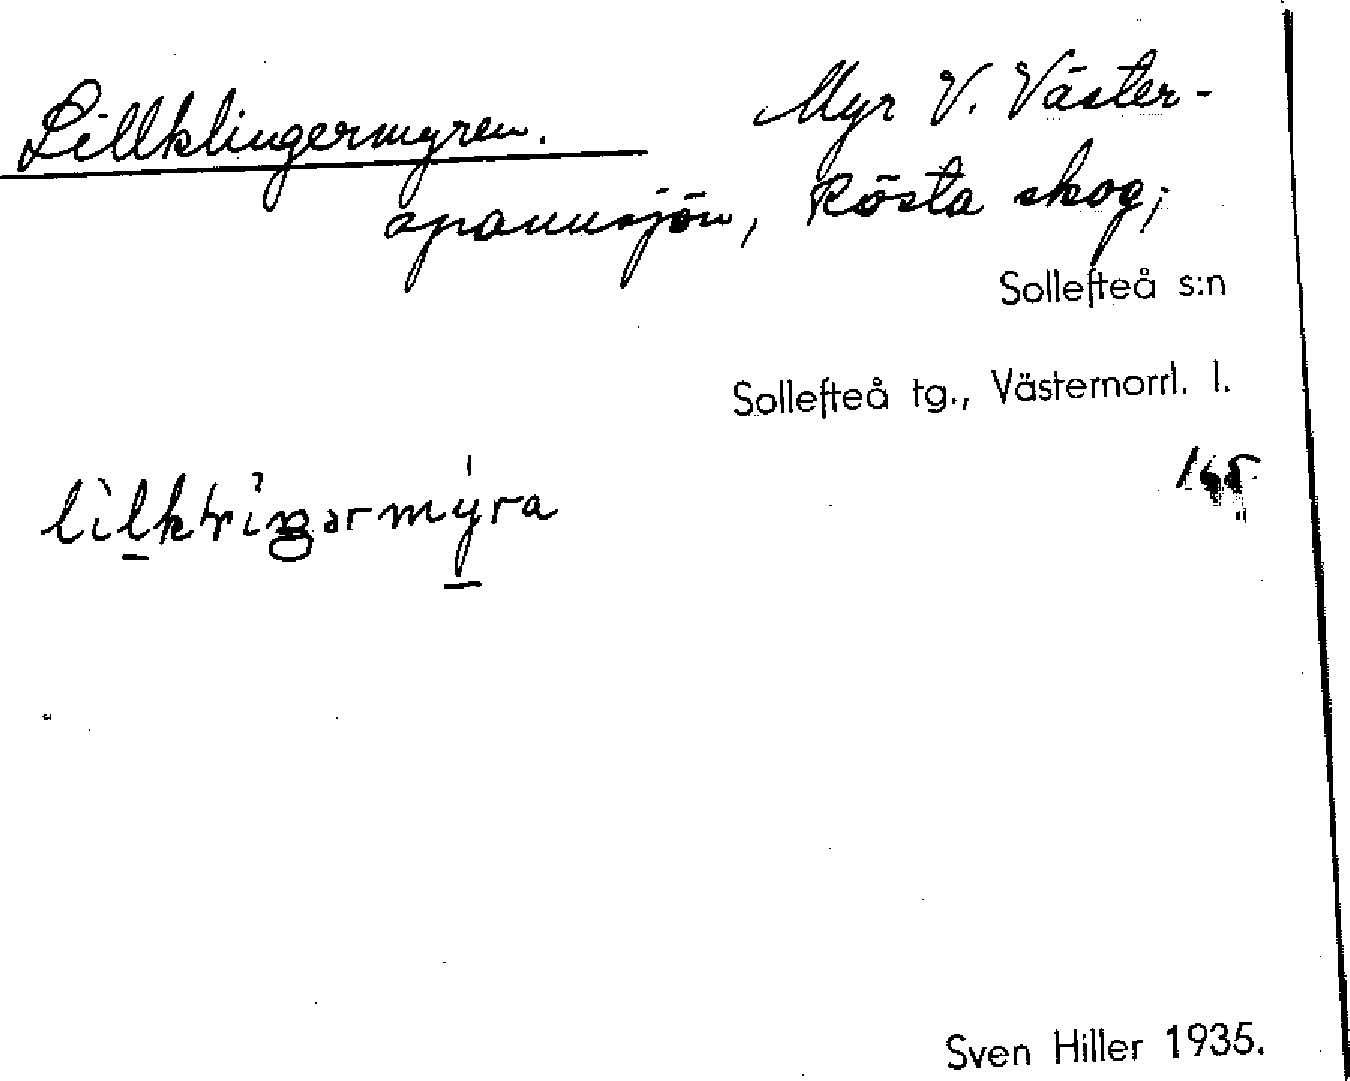 Lillklingermyren.
Myr V. Väster-
spannsjön, Rösta skog;
Sollefteå s:n
Sollefteå tg., Västernorrl. l.
Sven Hiller 1935.